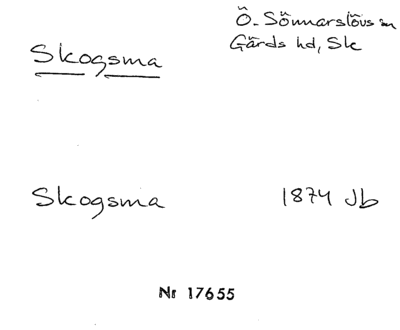 Ö. Sönnarslövs sn
Gärds hd, Sk
Skogsma
Skogsma 1874 Jb
Nr 17655